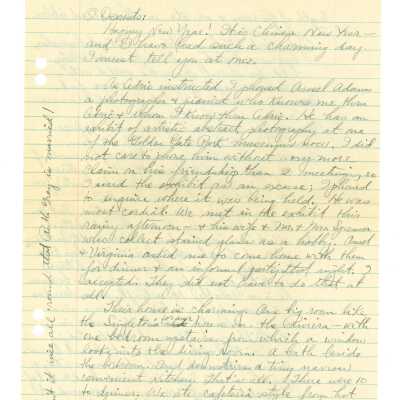 Dearests:
Happy New Year! It is Chinese New Year—
and I have had such a charming day
I must tell you at once.
As Cedric instructed I phoned Ansel Adams
a photographer & pianist who knows me thru
Cedric & whom I know thru Cedric. He has an
exhibit of artistic abstract photography at one
of the Golden Gate Park museums now. I did
not care to phone him without any more
claim on his friendship than a meeting, so
I used the exhibit as an excuse; I phoned
to enquire where it was being held. He was
most cordial. We met in the exhibit this
rainy afternoon — & his wife & Mr. & Mrs.
who collect stained glass as a hobby. Ansel
& Virginia asked me to come home with them
for dinner & an informal party that night. I
accepted. They did not have to do that at
all.
Their home is charming. One big room like
the Singletons' house on the Riviera — with
one bedroom upstairs from which a window
looks into the living room. A bath beside
the bedroom. And downstairs a tiny narrow
convenient kitchen. That is all. & there were 10
to dinner. We ate cafeteria style from hot
it was all round that Ruth Gray is married!